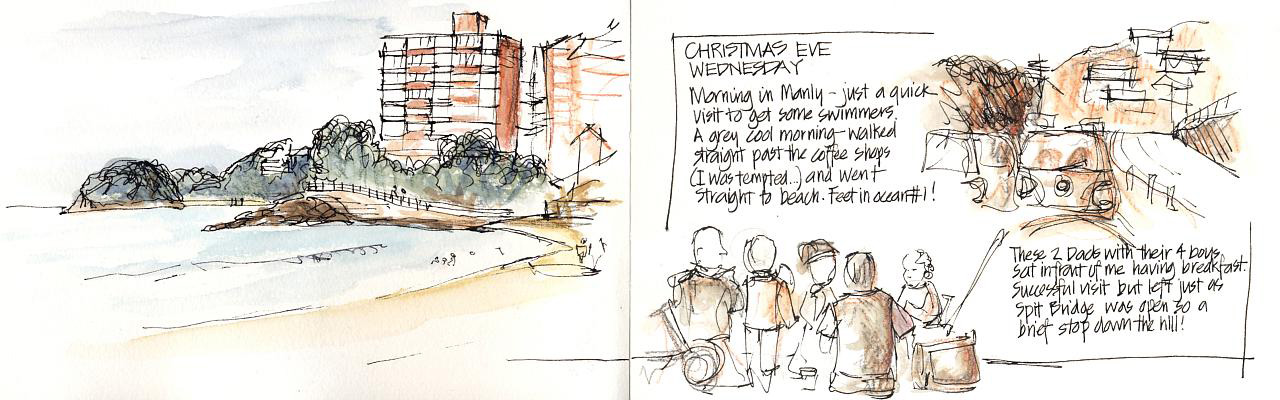 CHRISTMAS EVE
WEDNESDAY
Morning in Manly - just a quick
visit to get some swimmers.
A grey cool morning - walked
straight past the coffee shops
(I was tempted...) and went
straight to beach. Feet in ocean #1!
These 2 Dads with their 4 boys
sat infront of me having breakfast.
Successful visit but left just as
Spit Bridge was open so a
brief stop down the hill!